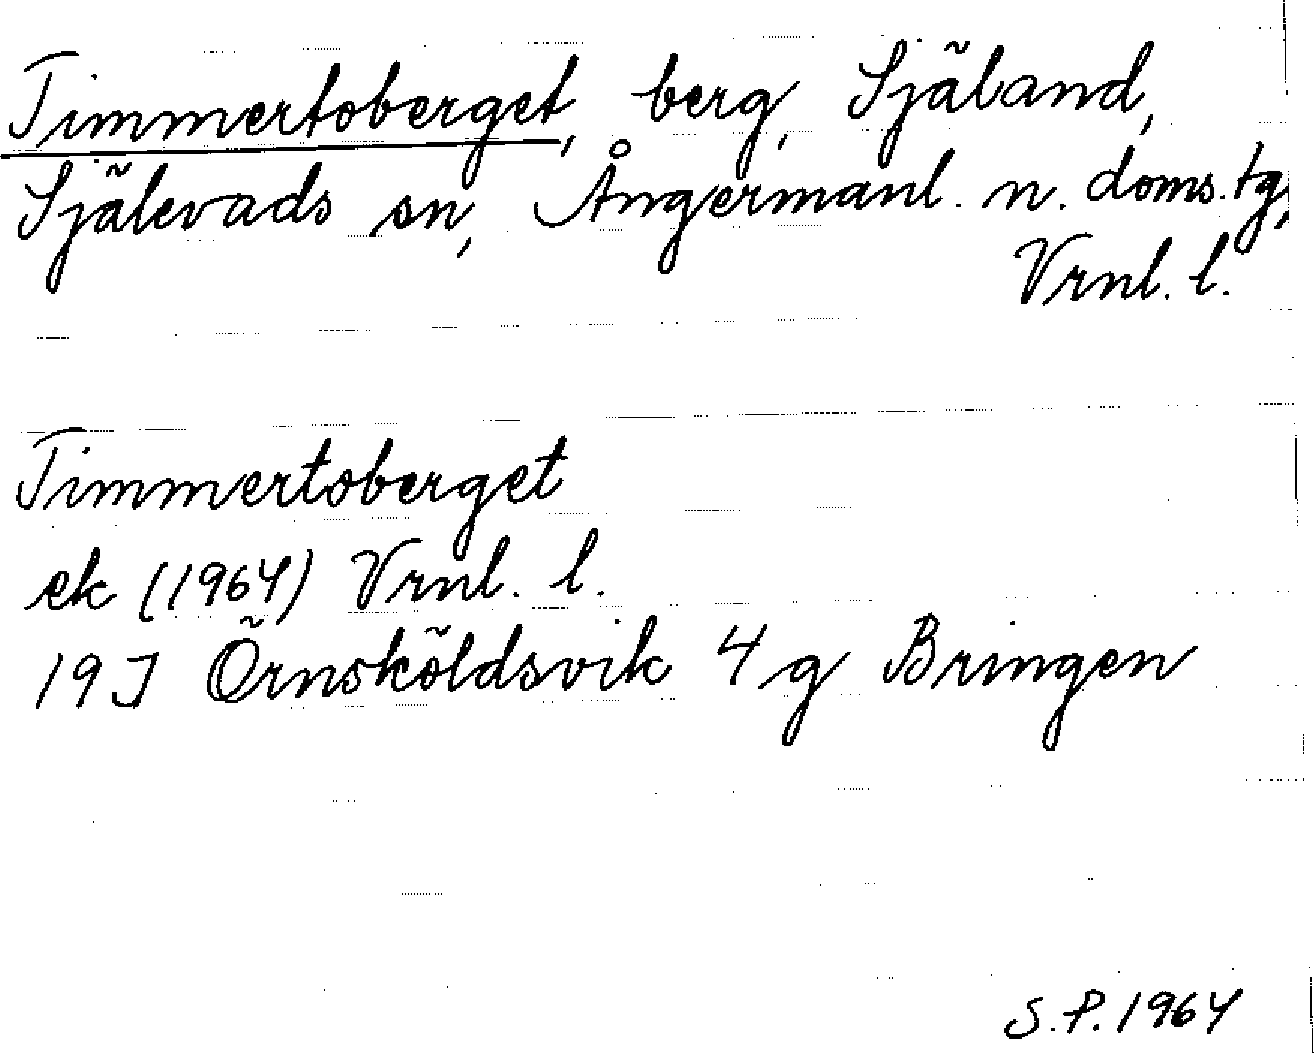 Timmertoberget, berg, Själand,
Själevads sn, Ångermanl. n. doms. tg,
Vrnl. l.
Timmertoberget
ek (1964) Vrnl. l.
19J Örnsköldsvik 4g Bringen
S.P. 1964